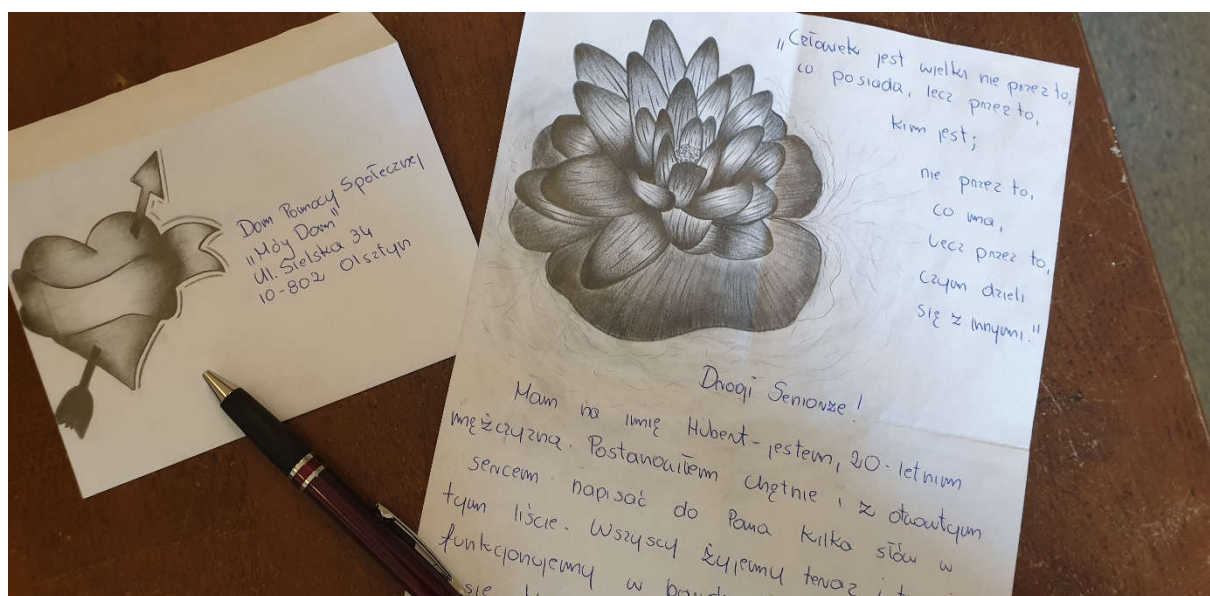 Dom Pomocy Społecznej
„Mój Dom"
Ul. Sielska 34
10-802 Olsztyn
„Człowiek jest wielki nie przez to,
co posiada, lecz przez to,
kim jest;
nie przez to,
co ma,
lecz przez to,
czym dzieli
się z innymi."
Drogi Seniorze!
Mam na imię Hubert - jestem, 20-letnim
mężczyzną. Postanowiłem chętnie i z otwartym
sercem napisać do Pana kilka słów w
tym liście. Wszyscy żyjemy teraz i
funkcjonujemy w
się